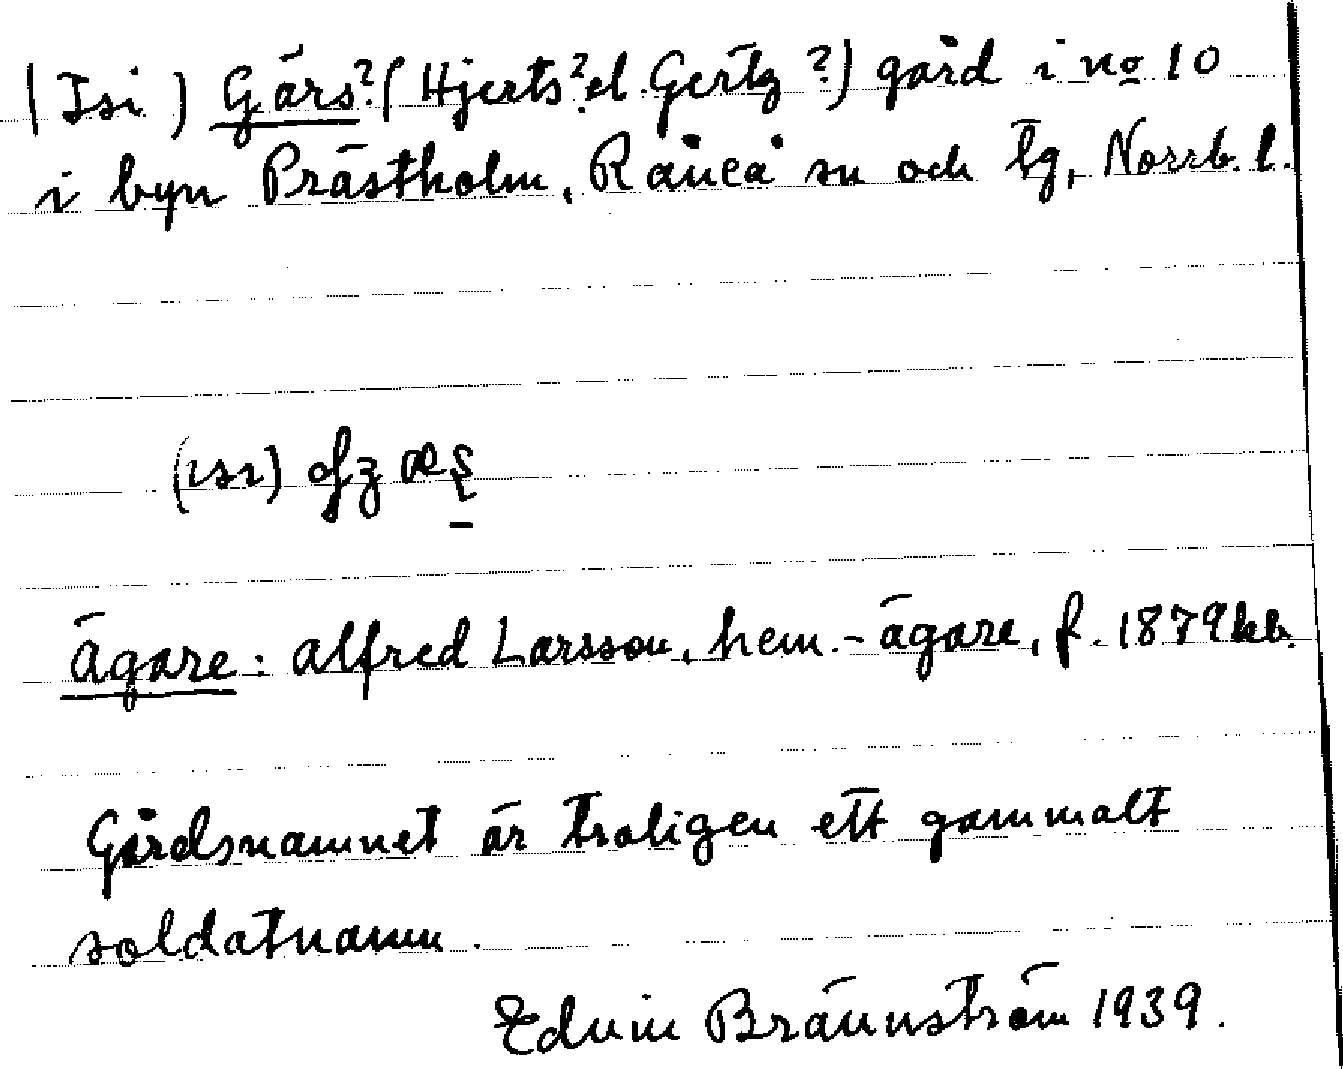 (Isi) Gärs? (Hjerts? el. Gertz?) gård i no 10
i byn Prästholm, Råneå sn och tg, Norrb. l.
(ısı)
Ägare: Alfred Larsson, hem.-ägare, f. 1879 kb.
Gårdsnamnet är troligen ett gammalt
soldatnamn.
Edvin Brännström 1939.